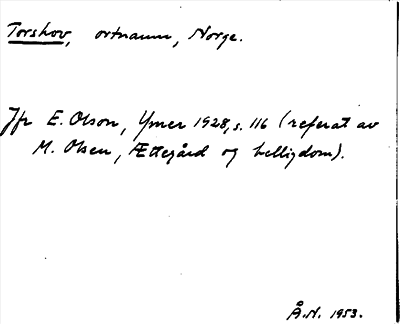 Torshov, ortnamn, Norge.
Jfr E. Olson, Ymer 1928, s. 116 (referat av
M. Olsen, Ættegård og helligdom).
Å.N. 1953.